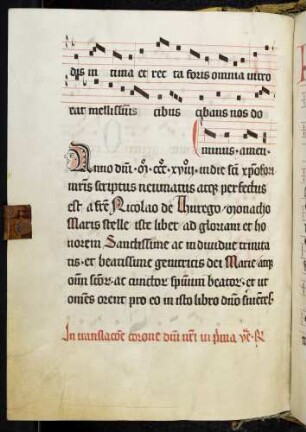 dis in tima et rec ta foris omnia intro
rat mellissimis cibus cibans nos do
minus. amen.
Anno dm̄. M. ccc. xviii. in die sc̄i xp̄ofori
mr̄is scriptus neumatus atq; perfectus
est a fr̄e Nicolao de Thurego monacho
Maris stelle iste liber ad gloriam et ho
norem Sanctissime ac indiuidue trinita
tis. et beatissime genitricis dei Marie atq;
om̄ sc̄or. ac cunctor sp̄uum beator. et ut
om̄es orent pro eo in isto libro dn̄o
In translac̄oe corone dn̄i nr̄i